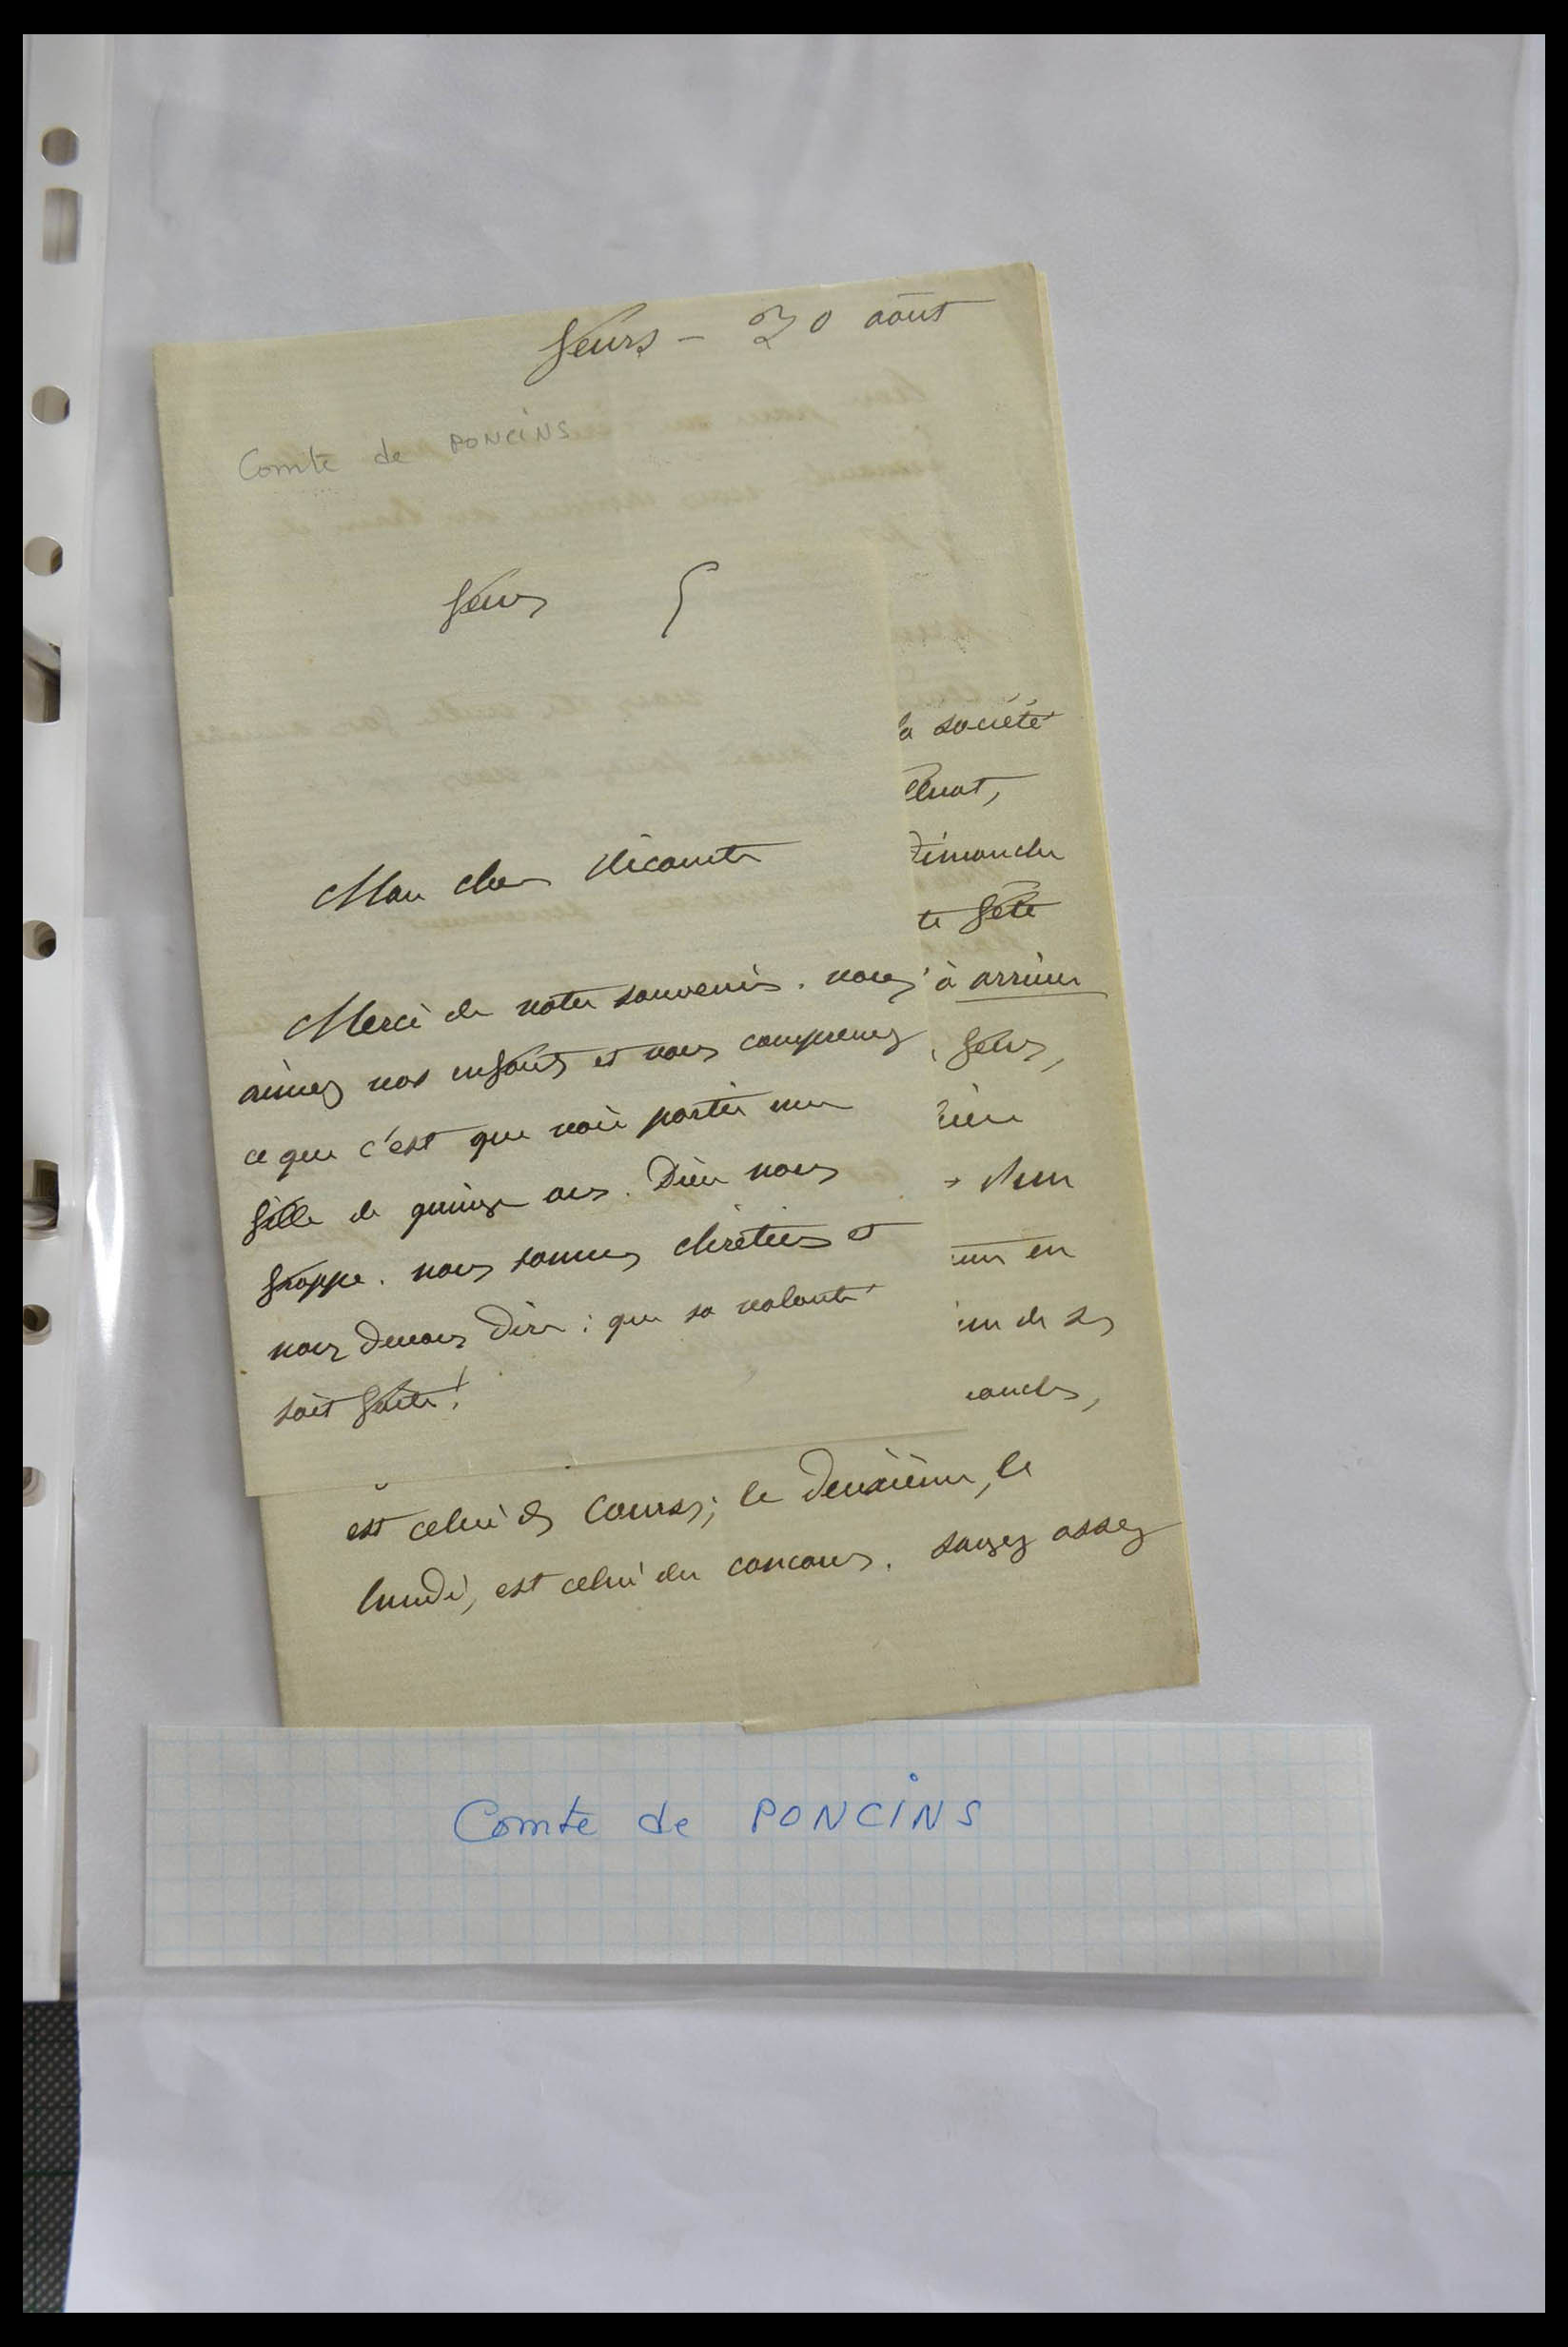 Feurs - 30 août
Comte de PONCINS
Feurs 5
Mon cher Vicomte
Merci de votre souvenir. vous
aimez vos enfants et vous comprenez
ce que c'est que voir partir une
fille de quinze ans. Dieu nous
frappe. nous sommes chrétiens et
nous devons dire : que sa volonté
soit faite !
la société
Dimanche
te fête
à arriver
Feurs,
en
de ses
est celui des courses; le deuxième, le
lundi, est celui du concours. soyez assez
Comte de PONCINS